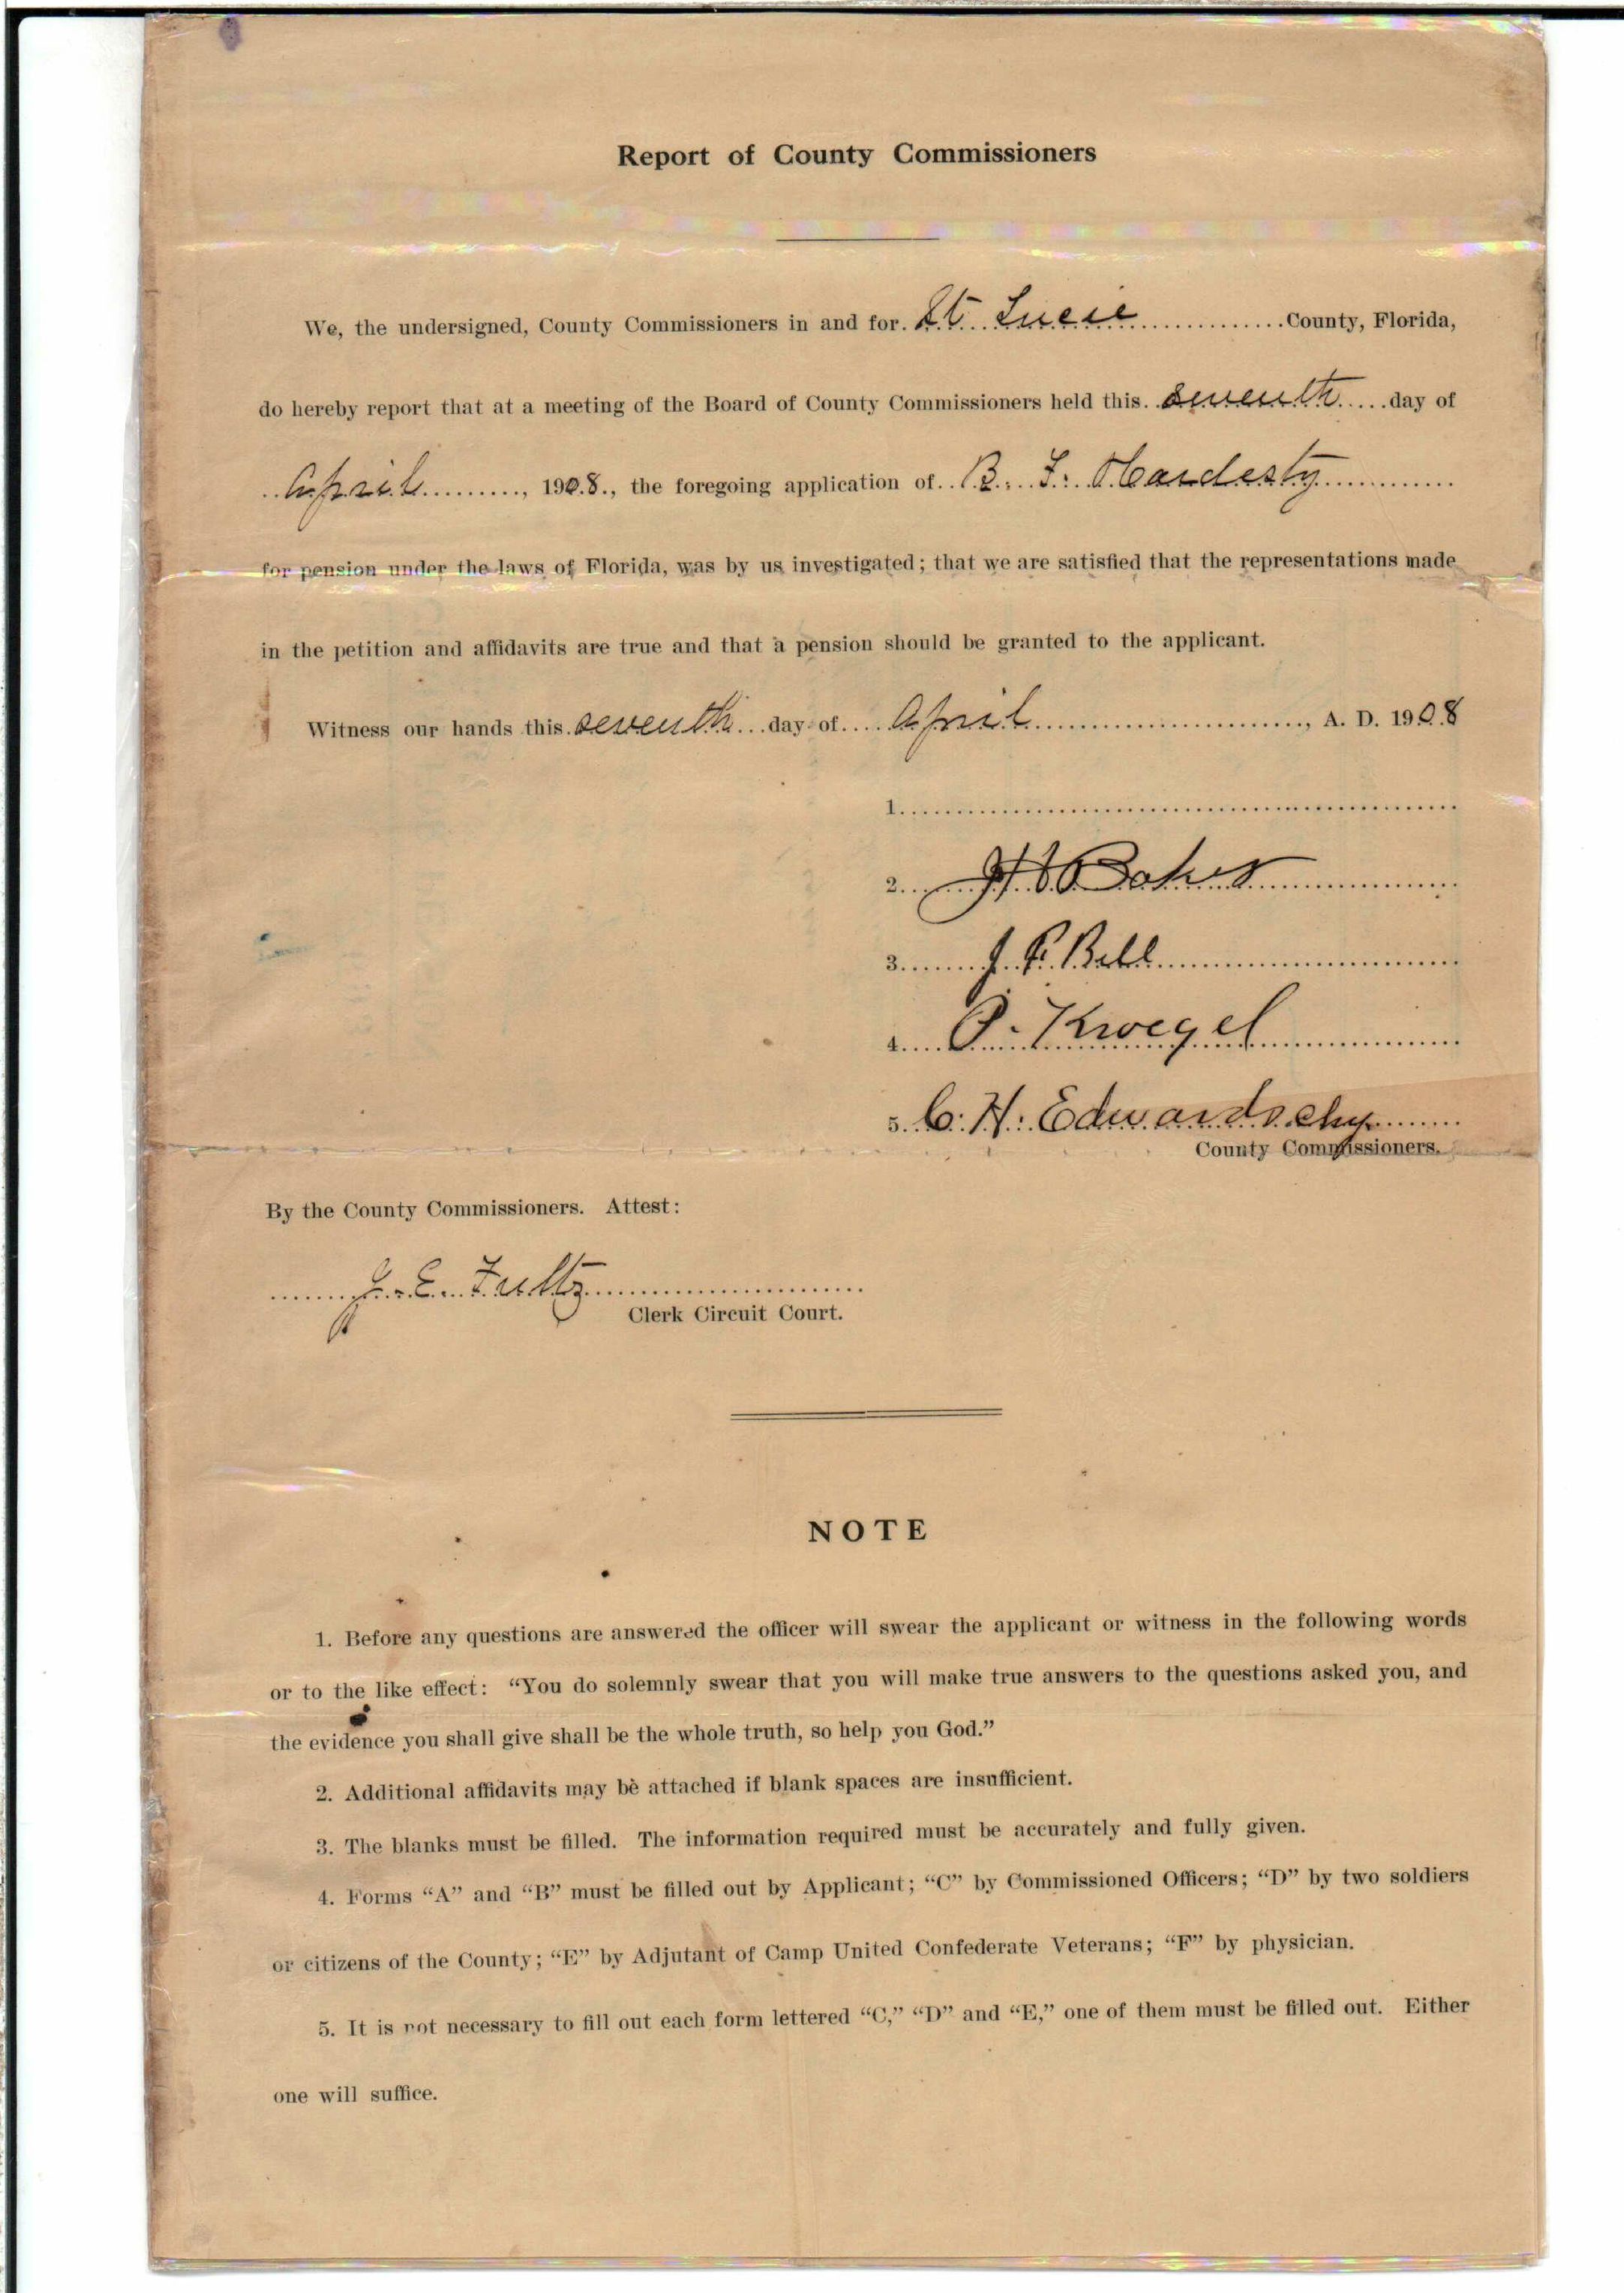 Report of County Commissioners
We, the undersigned, County Commissioners in and for St. Lucie County, Florida,
do hereby report that at a meeting of the Board of County Commissioners held this seventh day of
April, 1908., the foregoing application of B. F. Hardesty
for pension under the laws of Florida, was by us investigated; that we are satisfied that the representations made
in the petition and affidavits are true and that a pension should be granted to the applicant.
Witness our hands this seventh day of April, A. D. 1908
1.
2. Baker
3. J. P. Bell
4. P. Kroegel
5. C. H. Edwards chy
County Commissioners.
By the County Commissioners. Attest:
J. E. Fultz
Clerk Circuit Court.
NOTE
1. Before any questions are answered the officer will swear the applicant or witness in the following words
or to the like effect: “You do solemnly swear that you will make true answers to the questions asked you, and
the evidence you shall give shall be the whole truth, so help you God.”
2. Additional affidavits may be attached if blank spaces are insufficient.
3. The blanks must be filled. The information required must be accurately and fully given.
4. Forms “A” and “B” must be filled out by Applicant; “C” by Commissioned Officers; “D” by two soldiers
or citizens of the County; “E” by Adjutant of Camp United Confederate Veterans; “F” by physician.
5. It is not necessary to fill out each form lettered “C,” “D” and “E,” one of them must be filled out. Either
one will suffice.